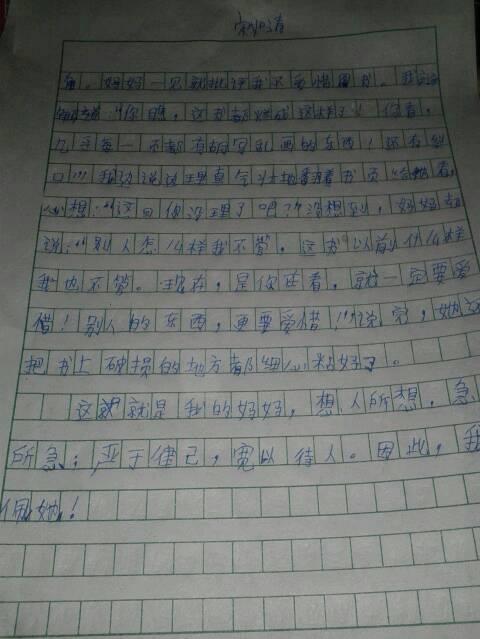 妈妈一见就批评我不爱惜图书。我
"你瞧，这书都烂成这样了！你看，
几乎每一页都有胡写乱画的东西！还有
口！"我边说边理直气壮地翻着书页给她看，
心想："这回你没理了吧？"没想到，妈妈却
说："别人怎么样我不管，这书以前什么样
我也不管。现在，是你在看，就一定要爱
惜！别人的东西，更要爱惜！"说完，她
把书上破损的地方都细心粘好了。
这就是我的妈妈，想人所想，急
所急；严于律己，宽以待人。因此，我
佩她！